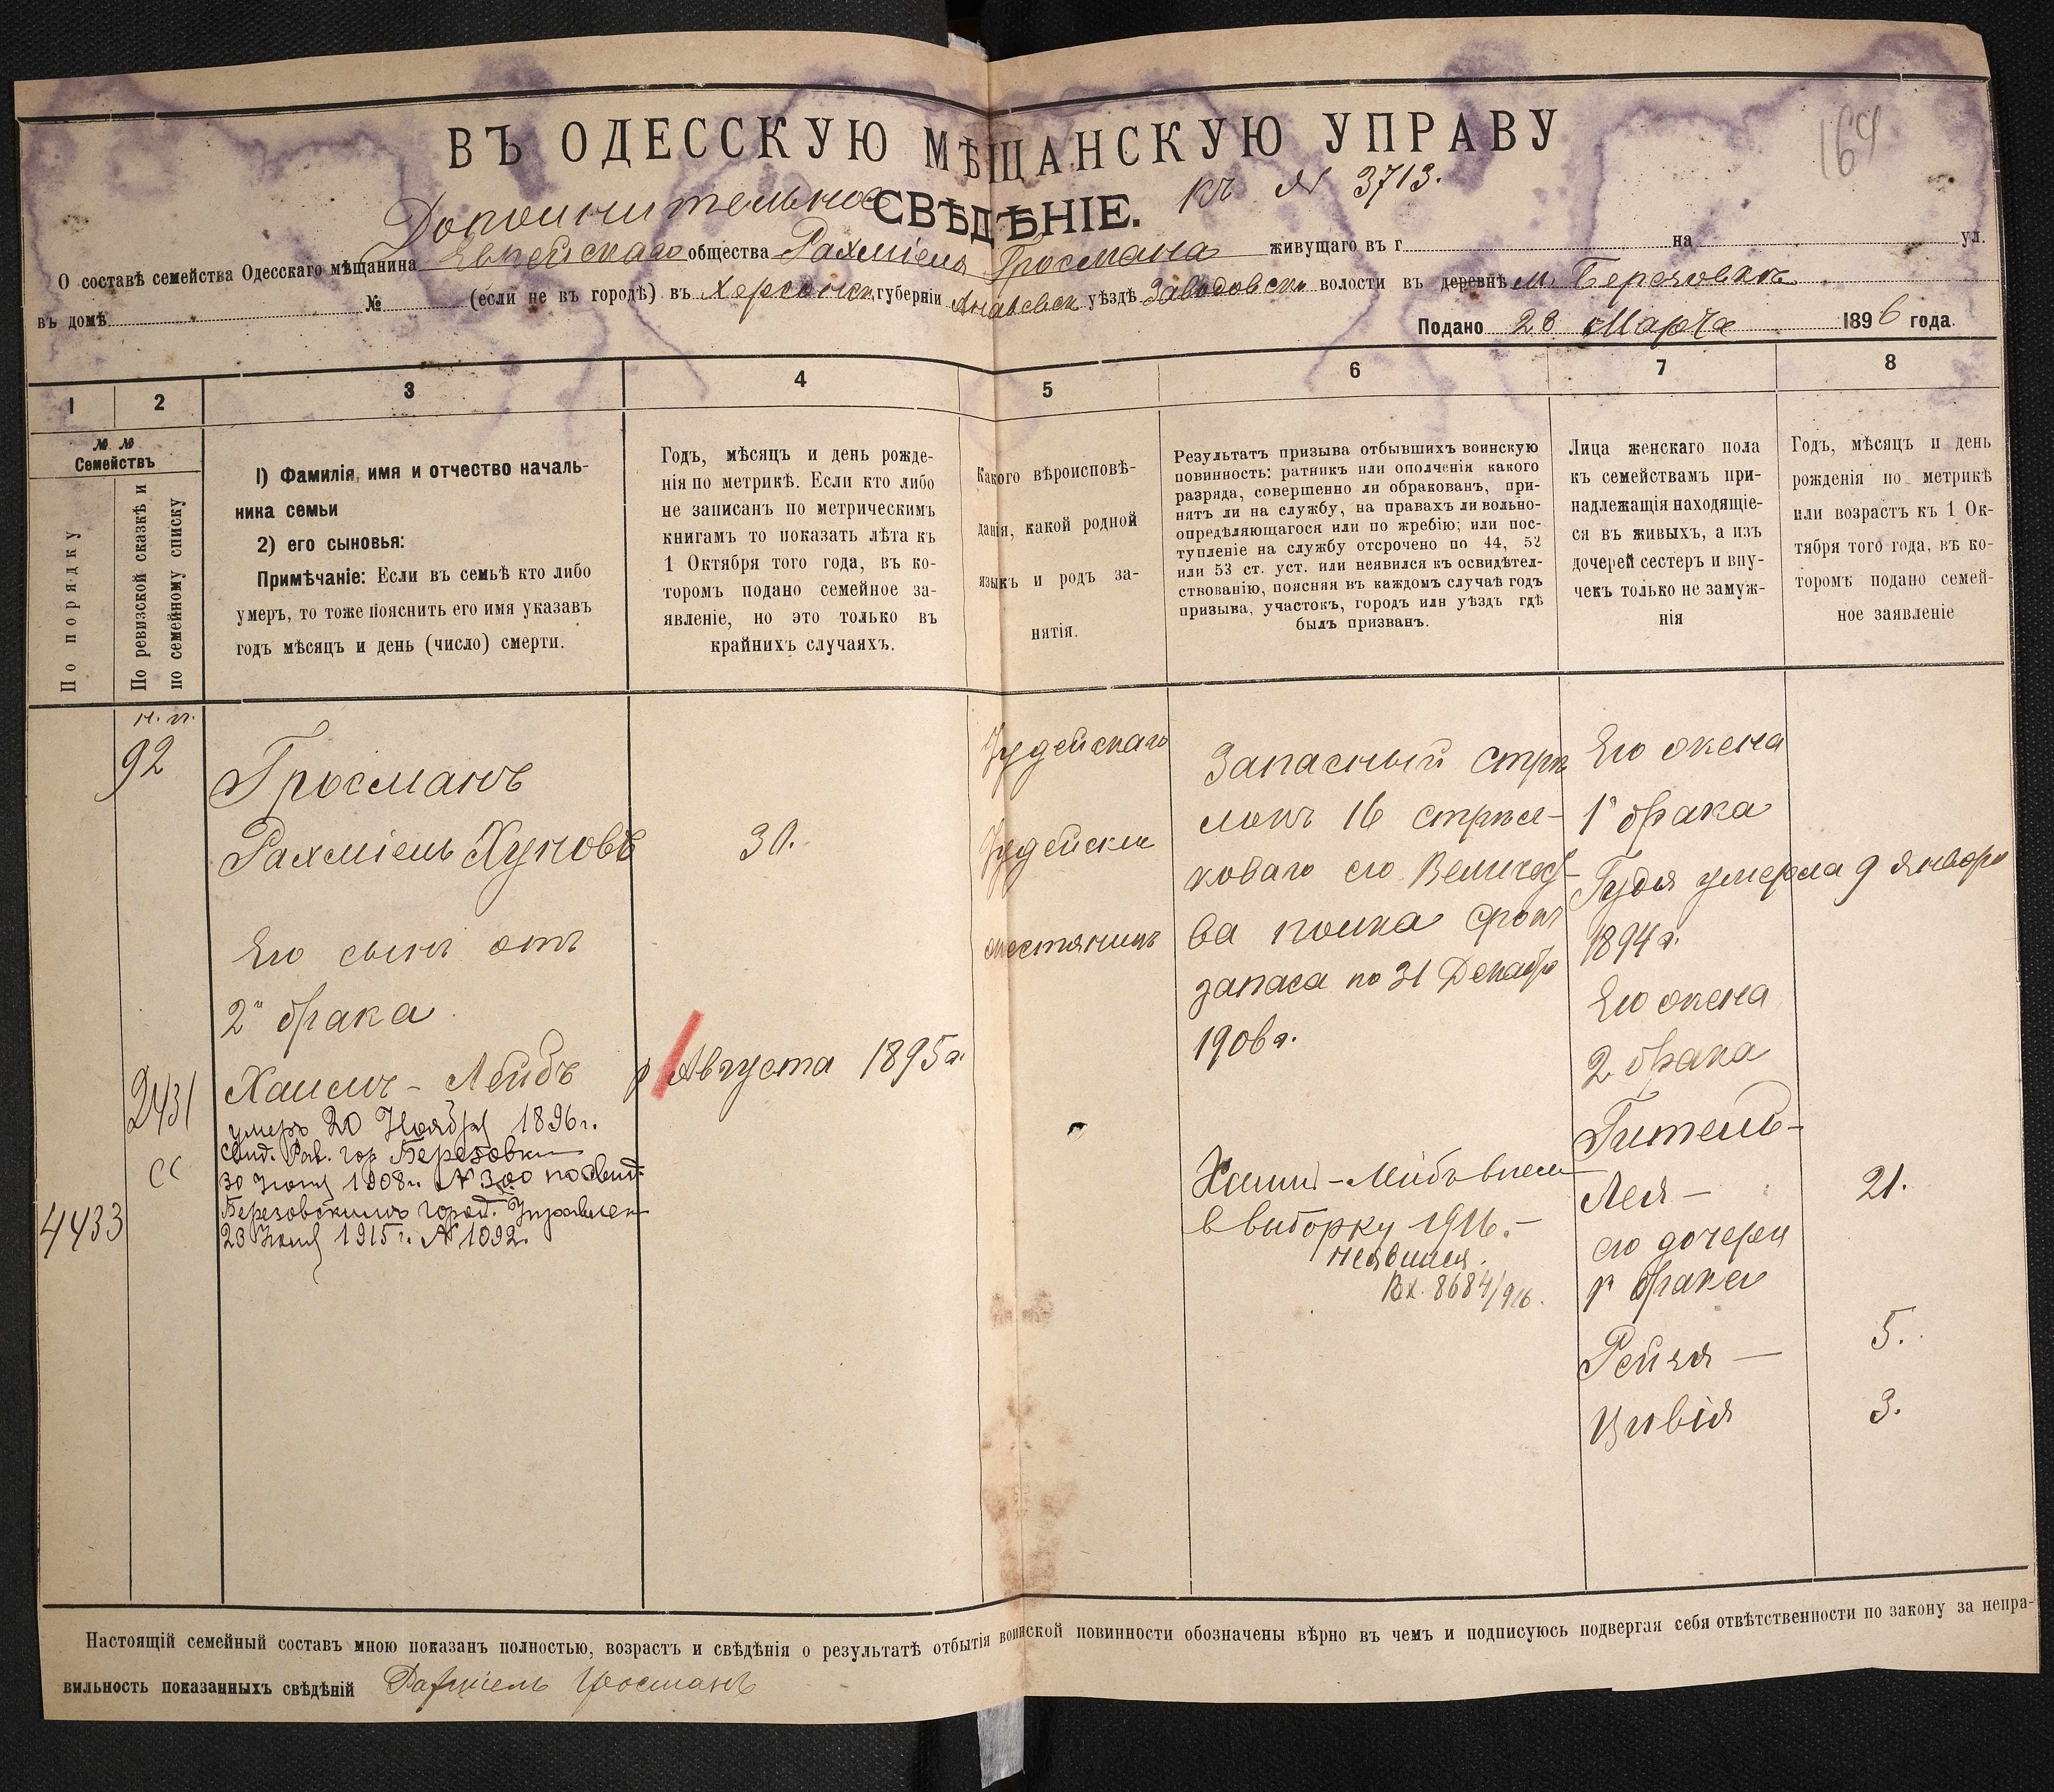 164
ВЪ ОДЕССКУЮ МѢЩАНСКУЮ УПРАВУ
Дополнительное СВѢДѢНІЕ. къ № 3713.
О составѣ семейства Одесскаго мѣщанина Еврейскаго общества Рахміеля Гросмана живущаго въ г. на ул.
въ домѣ № (если не въ городѣ) въ Херсонск. губерніи Ананьевск уѣздѣ Заводовск волости въ деревнѣ м. Березовкѣ
Подано 28 Марта 1896 года.
1 2 3 4 5 6 7 8
№ №
Семействъ
По порядку
По ревизской сказкѣ и
по семейному списку
1) Фамилія, имя и отчество началь-
ника семьи
2) его сыновья:
Примѣчаніе: Если въ семьѣ кто либо
умеръ, то тоже пояснить его имя указавъ
годъ мѣсяцъ и день (число) смерти.
Годъ, мѣсяцъ и день рожде-
нія по метрикѣ. Если кто либо
не записанъ по метрическимъ
книгамъ то показать лѣта къ
1 Октября того года, въ ко-
торомъ подано семейное за-
явленіе, но это только въ
крайнихъ случаяхъ.
Какого вѣроисповѣ-
данія, какой родной
языкъ и родъ за-
нятія.
Результатъ призыва отбывшихъ воинскую
повинность: ратникъ или ополченія какого
разряда, совершенно ли обракованъ, при-
нятъ ли на службу, на правахъ ли вольно-
опредѣляющагося или по жребію; или пос-
тупленіе на службу отсрочено по 44, 52
или 53 ст. уст. или неявился къ освидѣтел-
ствованію, поясняя въ каждомъ случаѣ годъ
призыва, участокъ, городъ или уѣздъ гдѣ
былъ призванъ.
Лица женскаго пола
къ семействамъ при-
надлежащія находящіе-
ся въ живыхъ, а изъ
дочерей сестеръ и вну-
чекъ только не замуж-
нія
Годъ, мѣсяцъ и день
рожденія по метрикѣ
или возрастъ къ 1 Ок-
тября того года, въ ко-
торомъ подано семей-
ное заявленіе
92
Гросманъ
Рахміель Хуновъ
30.
Его сынъ отъ
2го брака
2431
Хаимъ - Лейбъ
р Августа 1895 г.
умеръ 20 Ноября 1896 г.
свид. Рав. гор Березовки
30 Іюня 1908 г. № 300 по свид.
Березовскимъ город. Управлен
23 Іюня 1915 г. № 1092.
СС
4433
Іудейскаго
Іудейскій
Запасный стрѣ
локъ 16 стрѣл-
коваго его Величест-
ва полка срокъ
запаса по 31 Декабр
1906 г.
Хаим - Лейбъ внесен
в выборку 1916. -
неявился.
Вх. 8684/916.
Его жена
1го брака
Гудя умерла 9 января
1894 г.
Его жена
2 брака
Гитель -
Лея -
21.
его дочери
1го брака
Рейзя -
5.
Цивія
3.
Настоящій семейный составъ мною показанъ полностью, возрастъ и свѣдѣнія о результатѣ отбытія воинской повинности обозначены вѣрно въ чемъ и подписуюсь подвергая себя отвѣтственности по закону за непра-
вильность показанныхъ свѣдѣній Рахміель Гросманъ